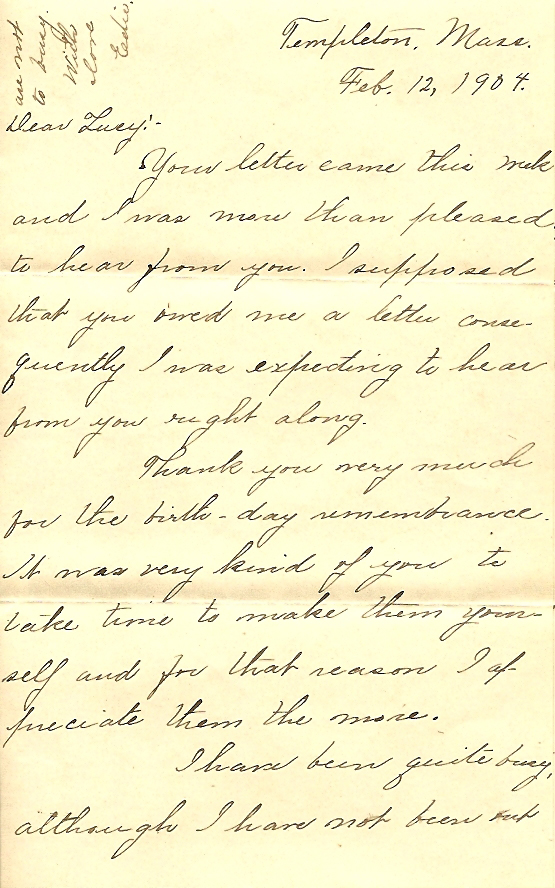 Templeton, Mass.
Feb. 12, 1904.
Dear Lucy:-
Your letter came this week
and I was more than pleased
to hear from you. I supposed
that you owed me a letter conse-
quently I was expecting to hear
from you right along.
Thank you very much
for the birth-day remembrance.
It was very kind of you to
take time to make them your-
self and for that reason I ap-
preciate them the more.
I have been quite busy,
although I have not been out
are not
to busy.
With
love